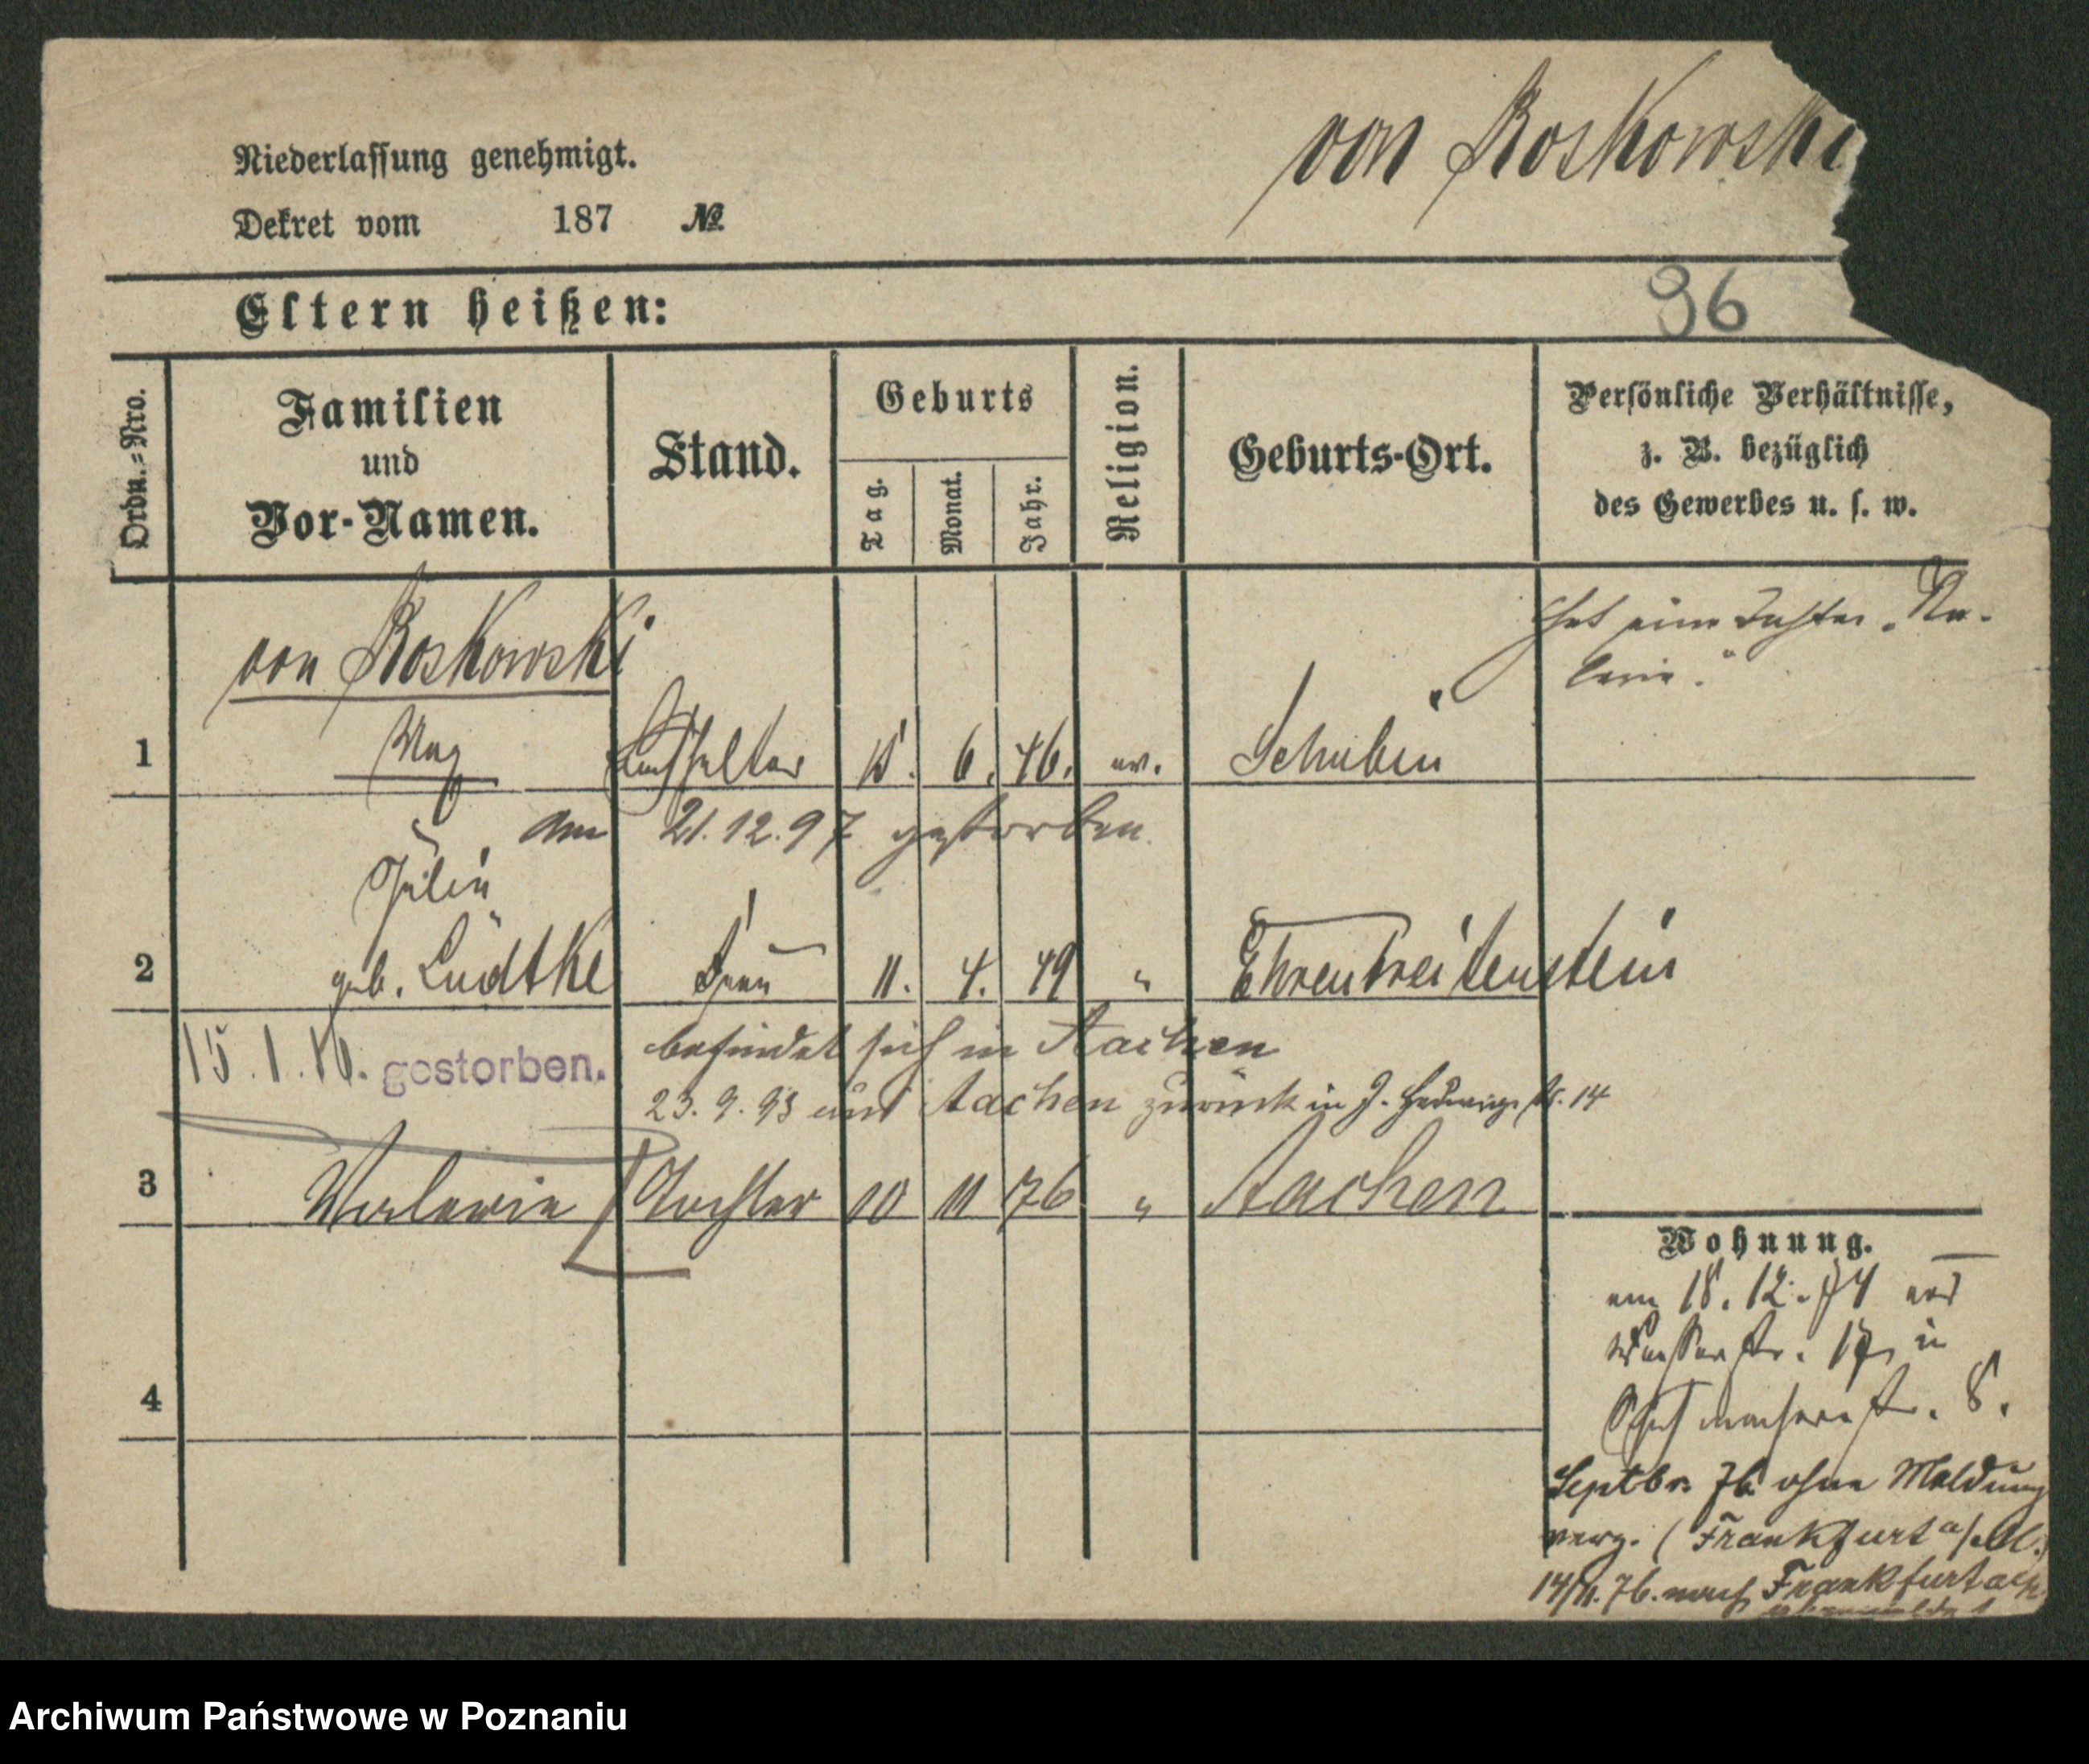 von Koskowski
Niederlassung genehmigt.
Dekret vom 187 №
Eltern heißen:
96
Ordn.-Nro.
Familien und Vor-Namen.
Stand.
Geburts
Tag. Monat. Jahr.
Religion.
Geburts-Ort.
Persönliche Verhältnisse,
z. B. bezüglich
des Gewerbes u. s. w.
von Koskowski
hat eine Tochter „Va-
lerie."
1 Max Buchhalter 15. 6. 46. ev. Schubin
am 21.12.97 gestorben.
Julie
2 geb. Lüdtke Frau 11. 4. 49 " Ehrenbreitenstein
15.1.16. gestorben.
befindet sich in Aachen
23.9.93 aus Aachen zurück in J. Hedwigstr. 14
3 Valerie Tochter 10 11 76 " Aachen
4
Wohnung.
am 18.12.74 aus
Wasserstr. 17, in
Schuhmacherstr. 8.
Septbr. 76 ohne Meldung
verz. (Frankfurt a/M.)
14/11.76. nach Frankfurt
Archiwum Państwowe w Poznaniu